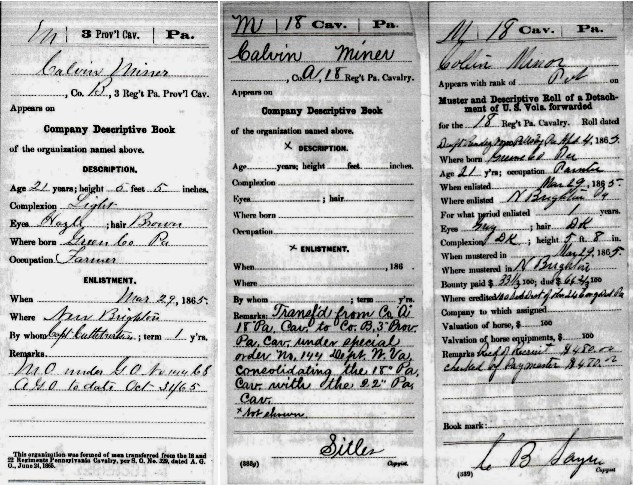 M | 3 Prov'l Cav. | Pa.
Calvin Miner
, Co. B, 3 Reg't Pa. Prov'l Cav.
Appears on
Company Descriptive Book
of the organization named above.
DESCRIPTION.
Age 21 years; height 5 feet 5 inches.
Complexion Light
Eyes Hazle ; hair Brown
Where born Green Co Pa
Occupation Farmer
ENLISTMENT.
When Mar 29, 1865.
Where New Brighton
By whom Capt ; term 1 y'rs.
Remarks
M.O. under G.O. No 144 C.S
A.G.O. to date Oct 31/65
This organization was formed of men transferred from the 18 and
22 Regiments Pennsylvania Cavalry, per S. O. No. 329, dated A. G.
O., June 24, 1865.
M | 18 Cav. | Pa.
Calvin Miner
, Co. A, 18 Reg't Pa. Cavalry.
Appears on
Company Descriptive Book
of the organization named above.
x DESCRIPTION.
Age years; height feet inches.
Complexion
Eyes ; hair
Where born
Occupation
x ENLISTMENT.
When , 186 .
Where
By whom ; term y'rs.
Remarks: Transf'd from Co A.
18" Pa. Cav. to Co. B, 3" Prov.
Pa. Cav. under special
order No, 144 Dept. W. Va,
consolidating the 18" Pa,
Cav. with the 22" Pa,
Cav.
x Not shown
Sitler
(383g) Copyist.
M | 18 Cav. | Pa.
Collin Minor
Appears with rank of Pvt on
Muster and Descriptive Roll of a Detach-
ment of U. S. Vols. forwarded
for the 18 Reg't Pa. Cavalry. Roll dated
Apl 4, 1865.
Where born Green Co Pa
Age 21 y'rs; occupation
When enlisted Mar 29, 1865.
Where enlisted N Brighton Pa
For what period enlisted 1 years.
Eyes Grey ; hair DK
Complexion DK ; height 5 ft. 8 in.
When mustered in Mar 29, 1865.
Where mustered in N Brighton
Bounty paid $33 1/3 100; due $66 2/3 100
Where credited
Company to which assigned
Valuation of horse, $ 100
Valuation of horse equipments, $ 100
Remarks Recruit $480.00
checked by Paymaster $480.00
Book mark:
C B Sayre
(339) Copyist.